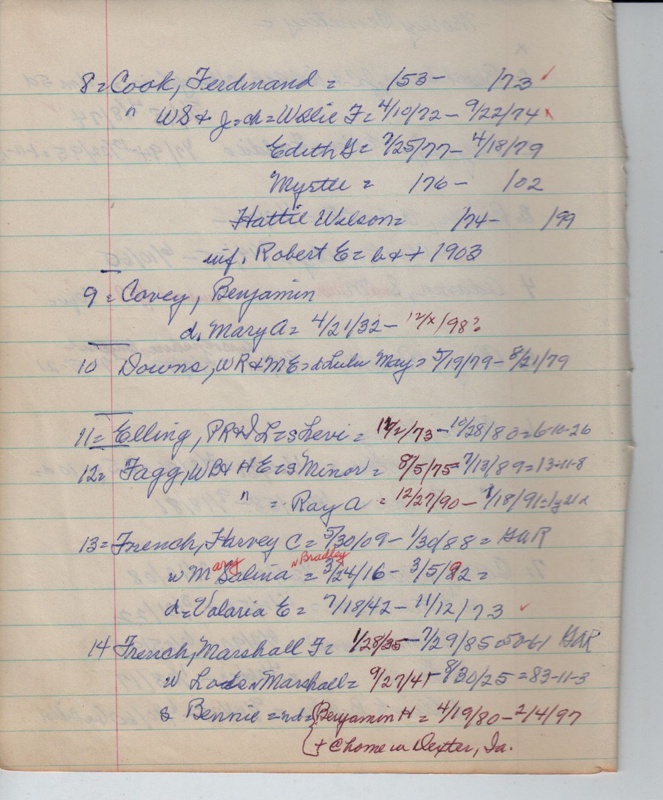 8 = Cook, Ferdinand = /53 - /73 ✓
" WS & J = ch = Willie F = 4/10/72 - 9/22/74
Edith G = 7/25/77 - 4/18/79
Myrtle = /76 - /02
Hattie Wilson = /74 - /99
inf. Robert E = b & + 1903
9 = Covey, Benjamin
d. Mary A = 4/21/32 - 12/x/98?
10 Downs, WR & ME = d Lulu May = 5/19/79 - 8/21/79
11 = Elling, PR & L = s Levi = /73 - 10/28/80 = 6-10-26
12 = Fagg, WB & HE = s Minor = 8/5/75 = 7/13/89 = 13-11-8
" = Ray A = 12/27/90 - /18/91 =
13 = French, Harvey C = 5/30/09 - 1/30/88 = GAR
w Mary Salina v Bradley = 3/24/16 - 3/5/92 =
d = Valaria E = 7/18/42 - 11/12/73 ✓
14 French, Marshall F = 1/28/35 - 7/29/85 GAR
w Marshall = 9/27/41 - 8/30/25 = 83-11-3
s Bennie = nd = Benjamin H = 4/19/80 - 2/4/97
+ @ home in Dexter, Ia.